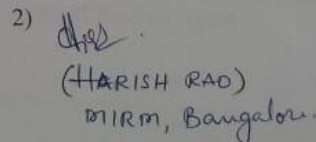 2)
(HARISH RAO)
MIRM, Bangalore.